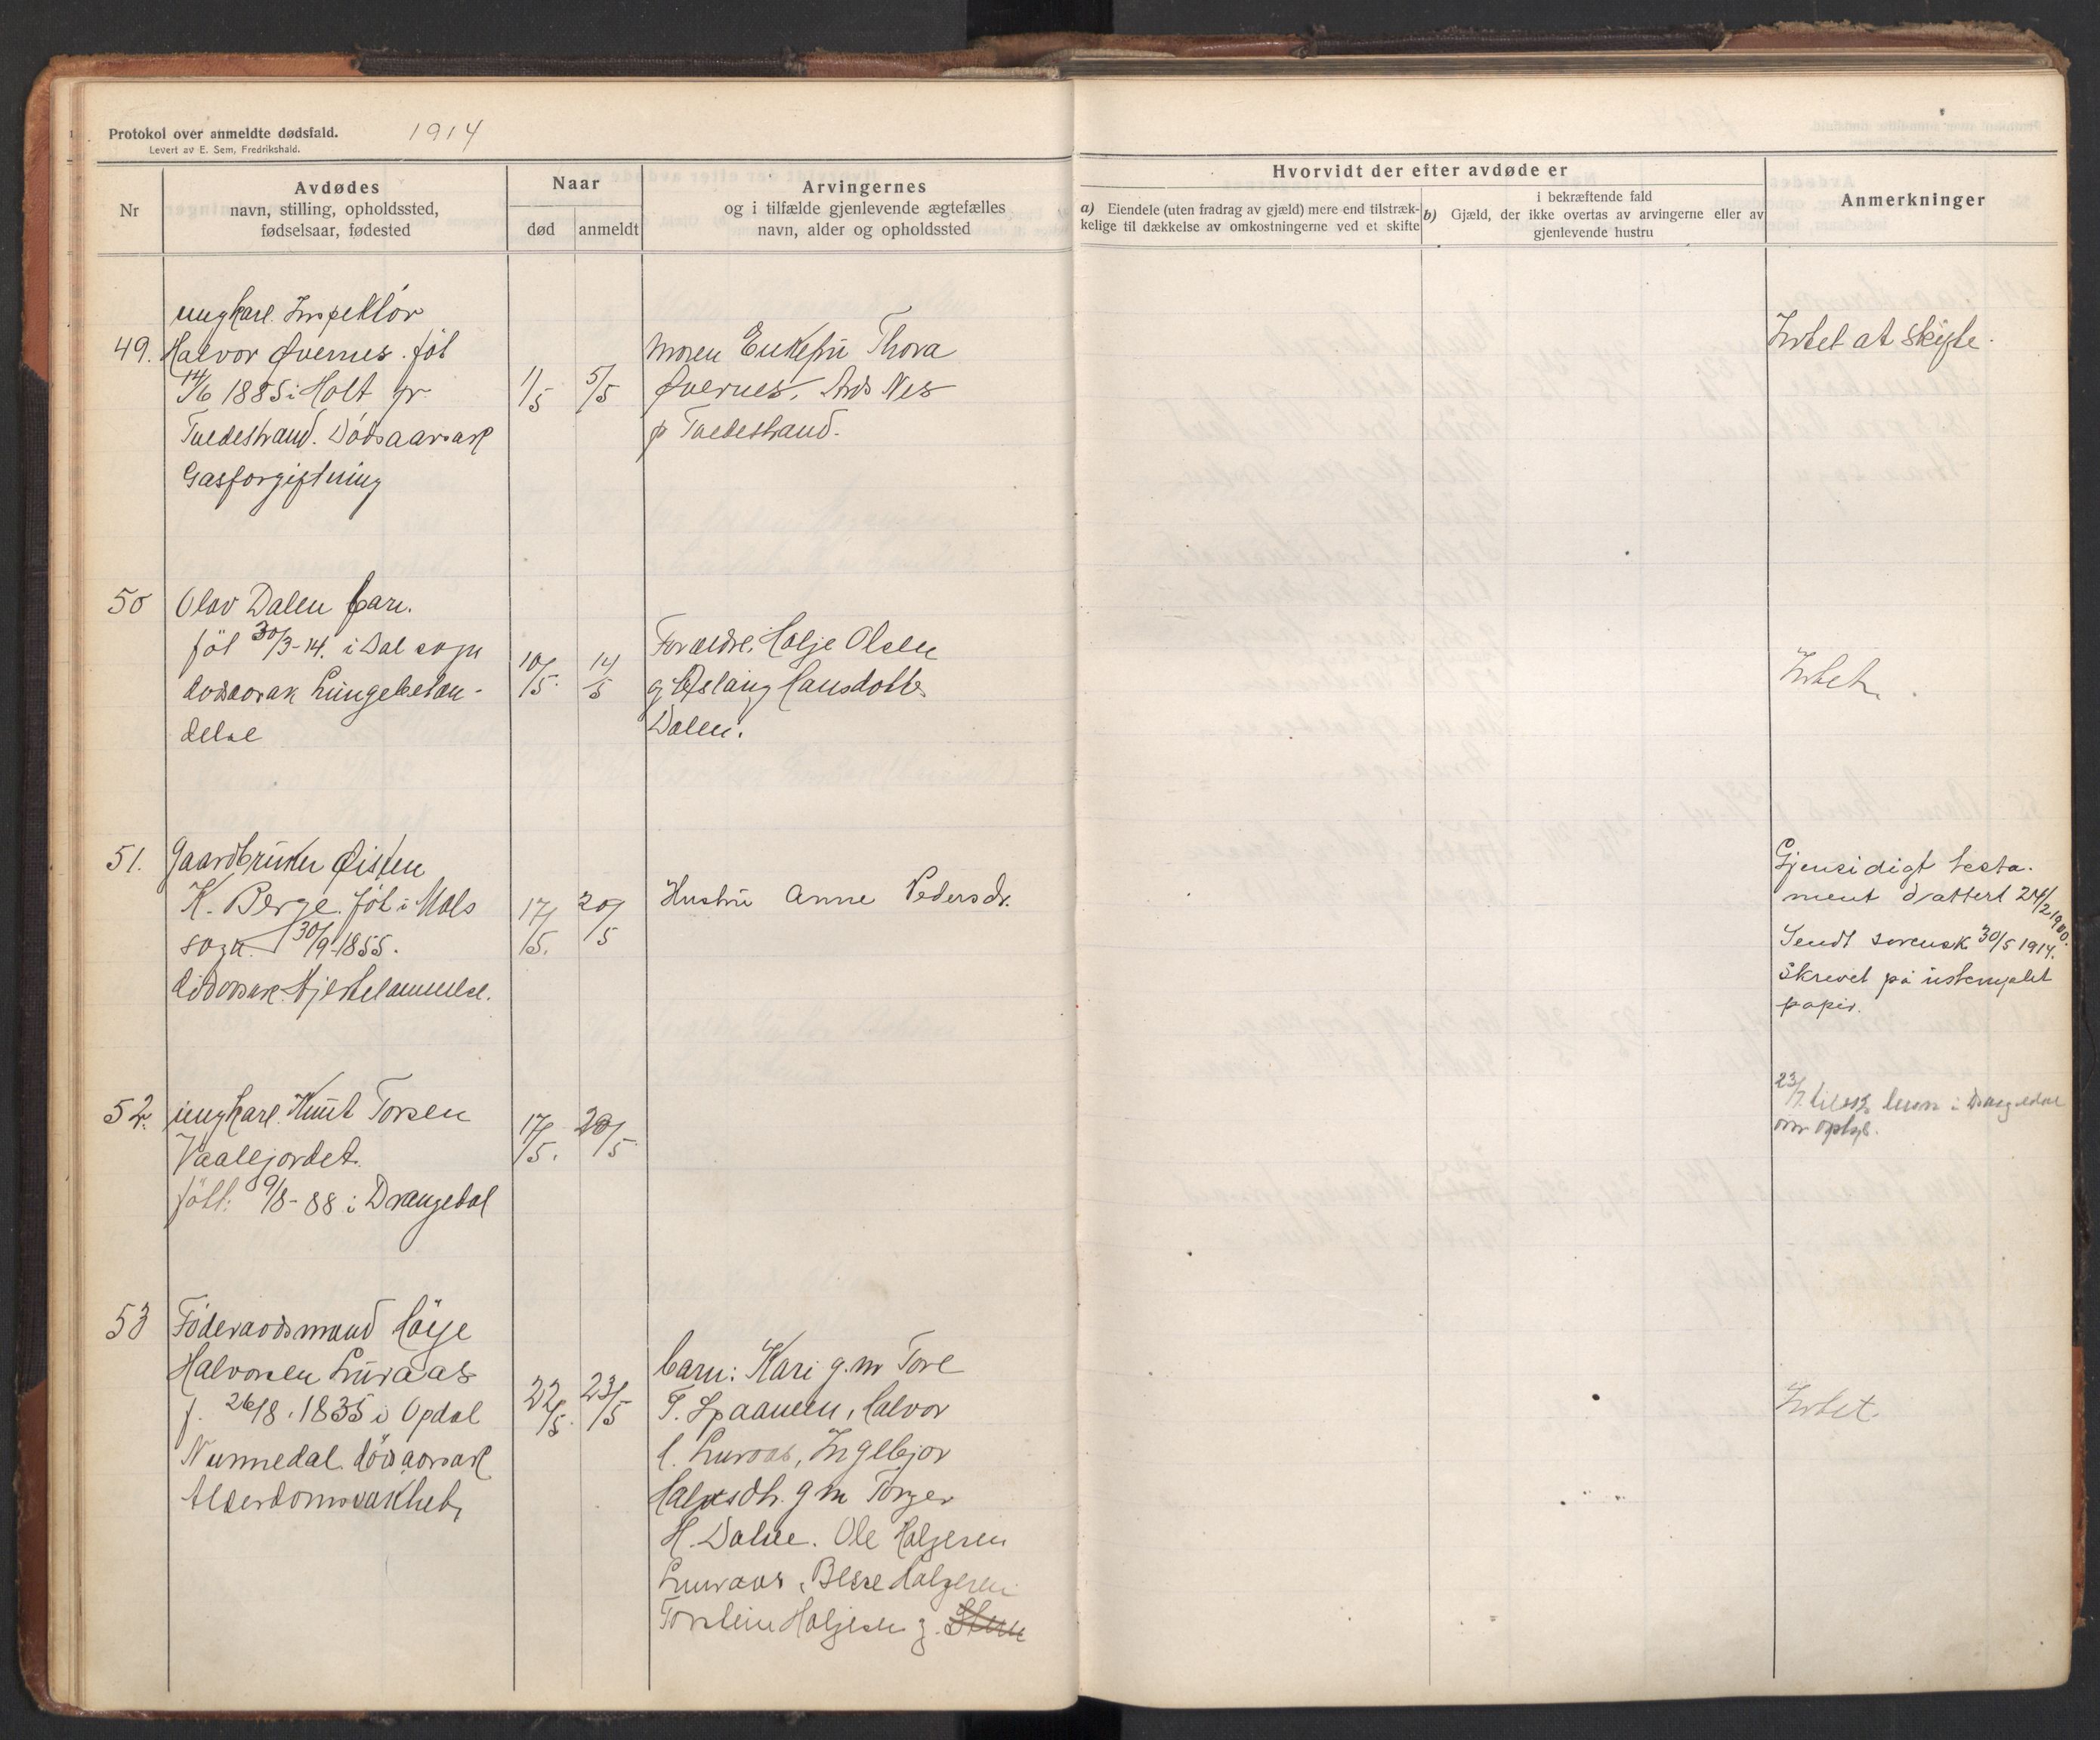 Protokol over anmeldte dødsfald.
1914
Levert av E. Sem, Fredrikshald.
Nr
Avdødes
navn, stilling, opholdssted,
fødselsaar, fødested
Naar
død
anmeldt
Arvingernes
og i tilfælde gjenlevende ægtefælles
navn, alder og opholdssted
Hvorvidt der efter avdøde er
a) Eiendele (uten fradrag av gjæld) mere end tilstræk-
kelige til dækkelse av omkostningerne ved et skifte
i bekræftende fald
b) Gjæld, der ikke overtas av arvingerne eller av
gjenlevende hustru
Anmerkninger
49.
ungkarl. Inspektør
Halvor Øvernes. føt
14/6 1885 i Holt pr
Tvedestrand. Dødsaarsak
Gasforgiftning
1/5
5/5
Moren Enkefru Thora
Øvernes, Nes
p Tvedestrand.
Intet at skifte.
50
Olav Dalen barn.
føt 30/3-14. i Dal sogn
dødsorsak Lungebetæn-
delse
10/5.
14/5
ForæDre: Halje Olsen
og Aslaug Hansdotter
Dalen.
Intet.
51.
Gaardbruker Østen
K. Berge. føt i Mæls
sogn 30/9-1855.
dødsorsak: Hjertelammelse.
17/5.
20/5
Hustru Anne Pedersdr.
Gjensidigt testa.
ment dattert 24/2 1900.
Sendt sorensk. 30/5 1914.
Skrevet på ustemplet
papir.
52.
ungkarl. Knut Torsen
Vaalejordet.
født: 9/8-88 i Drangedal
17/5.
20/5
23/7 tilsk. lensm i Drangedal
om opl.
53
Føderaadsmand Hølje
Halvorsen Luraas
f. 26/8. 1835 i Opdal
Nummedal. dødsaarsak
Alderdomssvakhet,
22/5.
23/5
barn: Kari g.m Tore
T. Spaanem, Halvor
H. Luraas, Ingebjør
Haljesdtr. g m Torger
H. Dalen. Ole Haljesen
Luraas, Besse Haljesen
Torstein Haljesen g.
Intet.